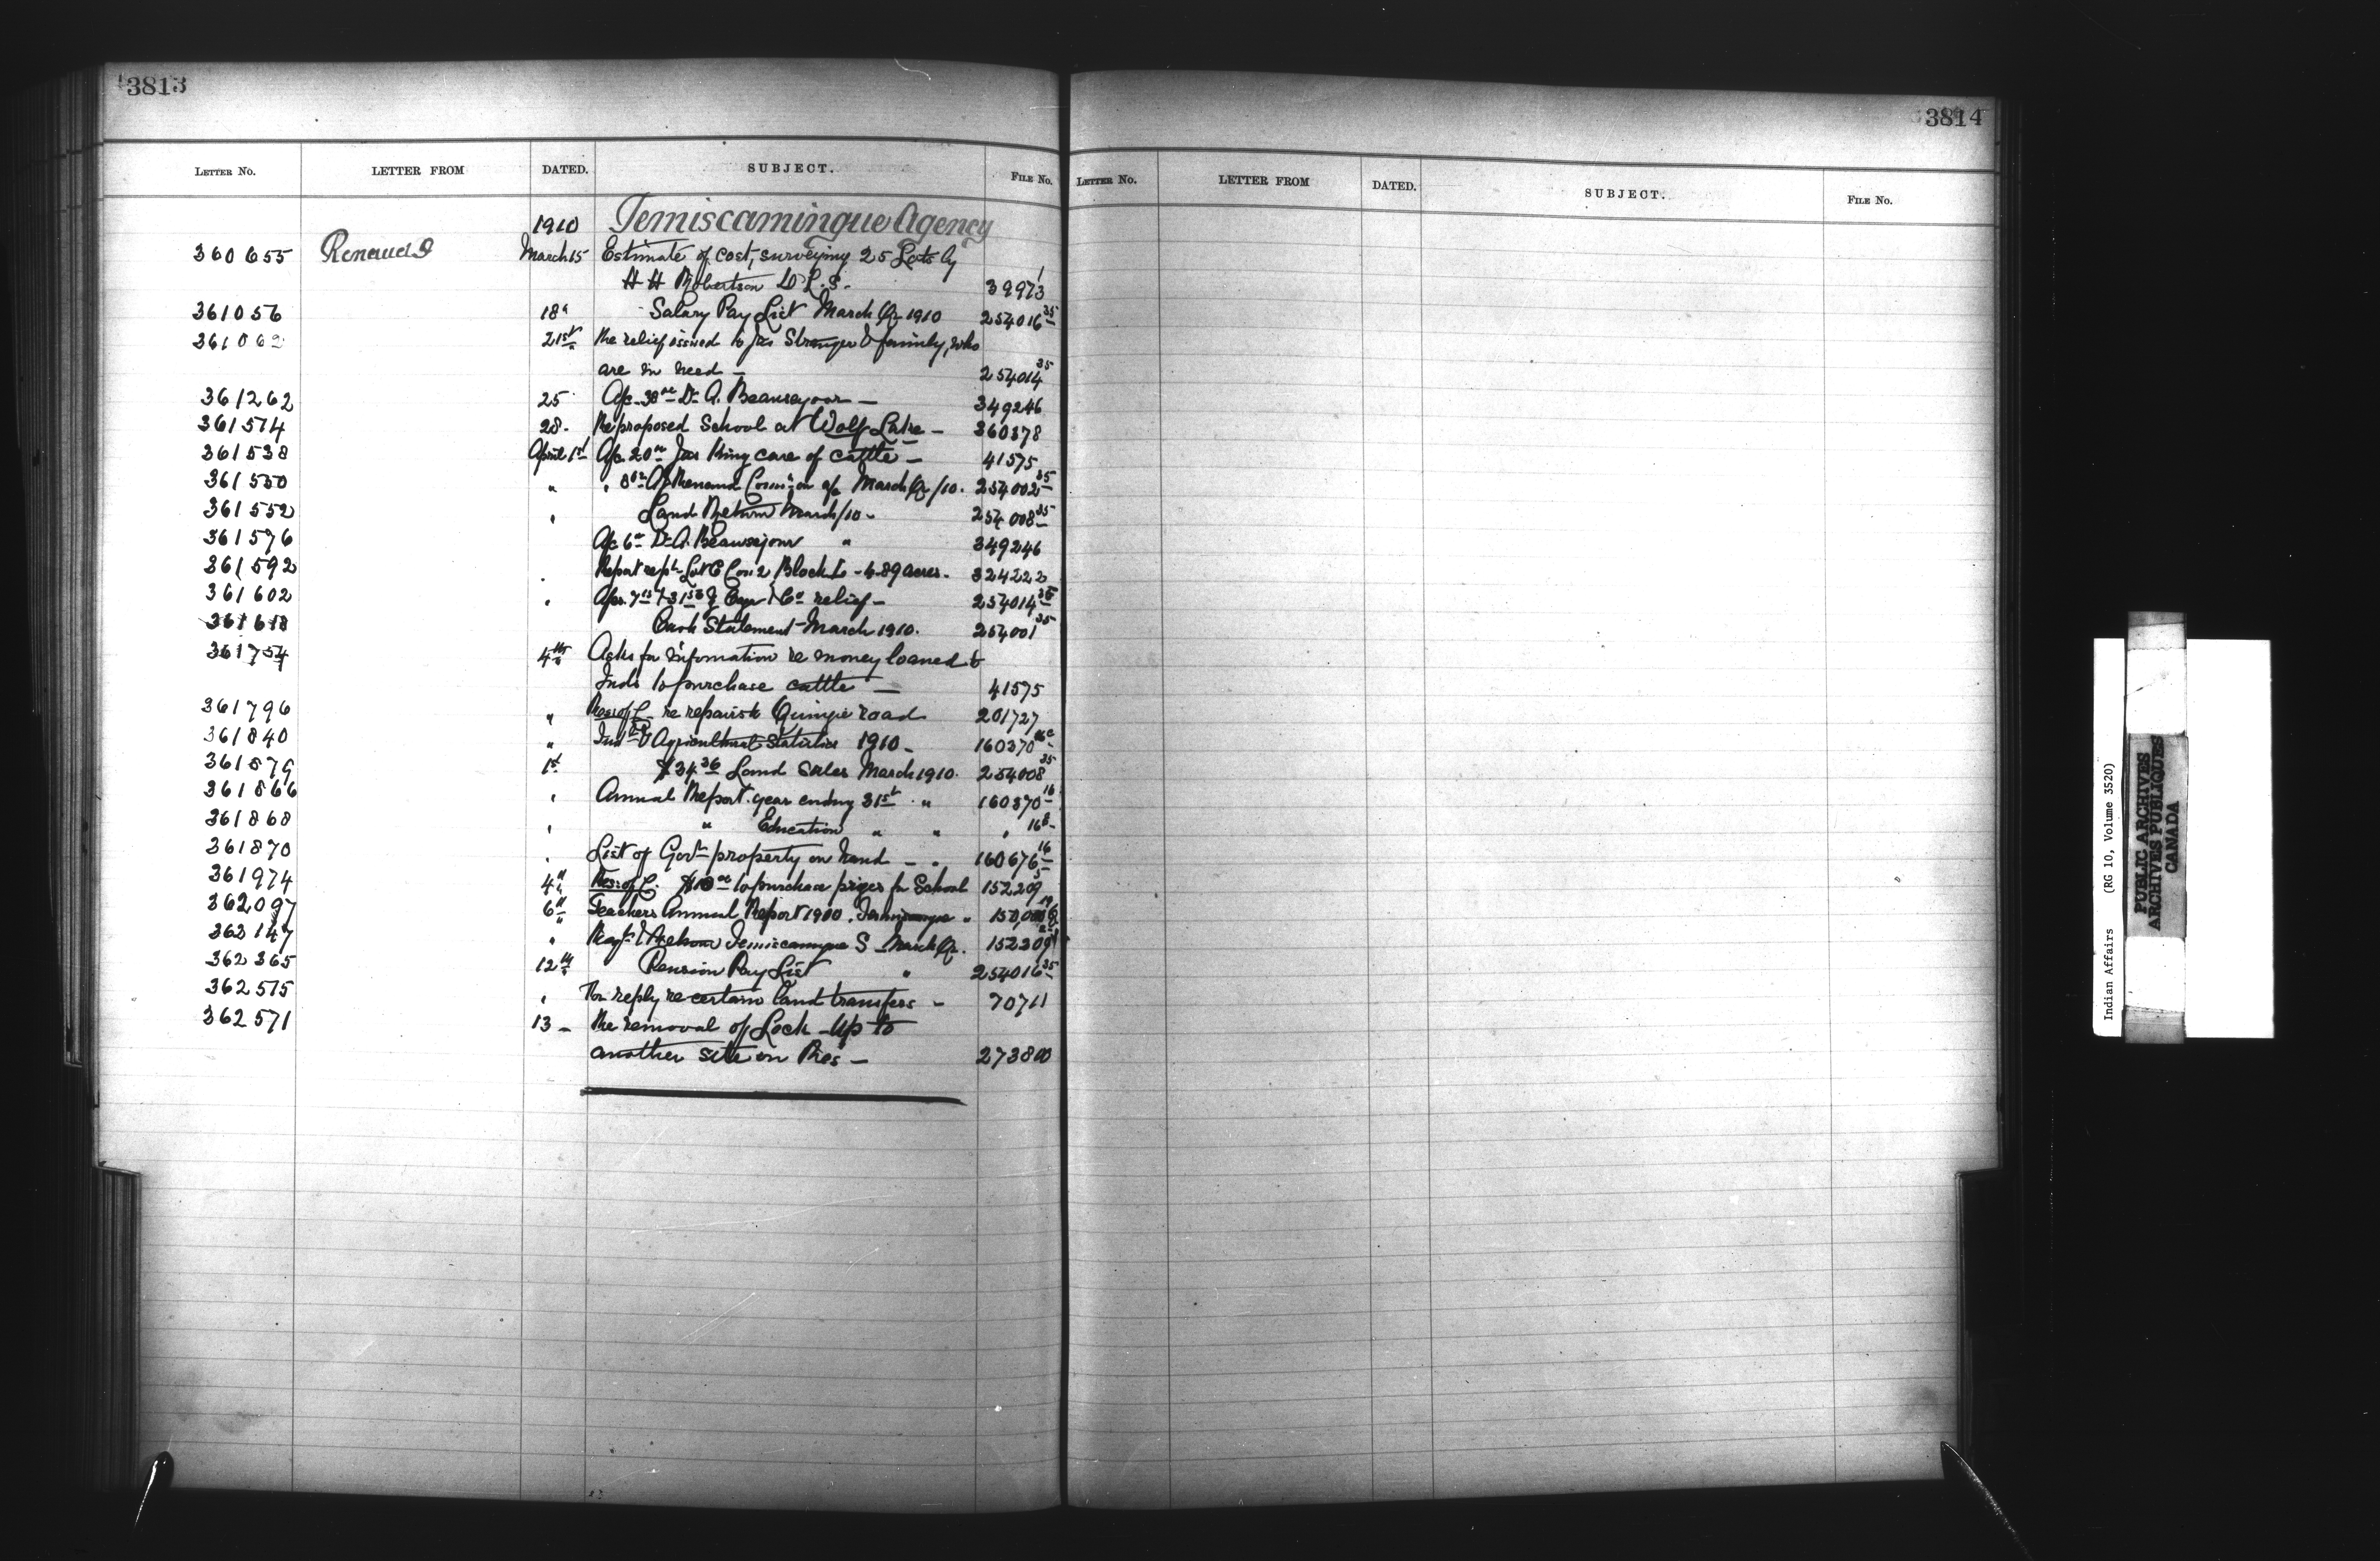 3813
LETTER NO. LETTER FROM DATED. SUBJECT. FILE NO.
1910 Temiscamingue Agency
360655 Renaud March 15 Estimate of cost, surveying 25 Lots by
H H Robertson D L. S. - 39973 1
361056 18 " Salary Pay List March Qr 1910 254016 35
361062 21st Re relief issued to Jas Stranger & family, who
are in need - 254014 35
361262 25 A/c. Dr A. Beausejour - 349246
361514 28. Re proposed School at Wolf Lake - 360378
361538 April 1st A/c. 20 Jas King care of cattle - 41575
361550 " Renaud a/c March Qr/10. 254002 35
361552 " Land Return March/10 - 254008 35
361576 A/c 6 Dr A. Beausejour " 349246
361592 Report Lot 6 Con 2, Block - 4.89 acres. 324222
361602 " relief - 254014 35
361618 Cash Statement March 1910. 254001 35
361754 4th Asks for information re money loaned to
Inds to purchase cattle - 41575
361796 " Res: of C. re repairs to road 201727
361840 " Agricultural Statistics 1910 - 160370
361579 1st $34 36 Land Sales March 1910. 254008 35
361866 " Annual Report. year ending 31st " 160370 16
361868 " " Education " " " 16
361870 . List of Govt property on hand - . 160676 16
361974 4th Res: of C. $10 00 to purchase prizes for School 152209
362097 6th Teachers Annual Report
362147 " Temiscamingue S - March Qr. 152209
362365 12th Pension Pay List " 254016 35
362515 " For reply re certain land transfers - 70711
362571 13 - Re removal of Lock-Up to
another site on Res - 273800
3814
LETTER NO. LETTER FROM DATED. SUBJECT. FILE NO.
Indian Affairs (RG 10, Volume 3520)
PUBLIC ARCHIVES
ARCHIVES PUBLIQUES
CANADA